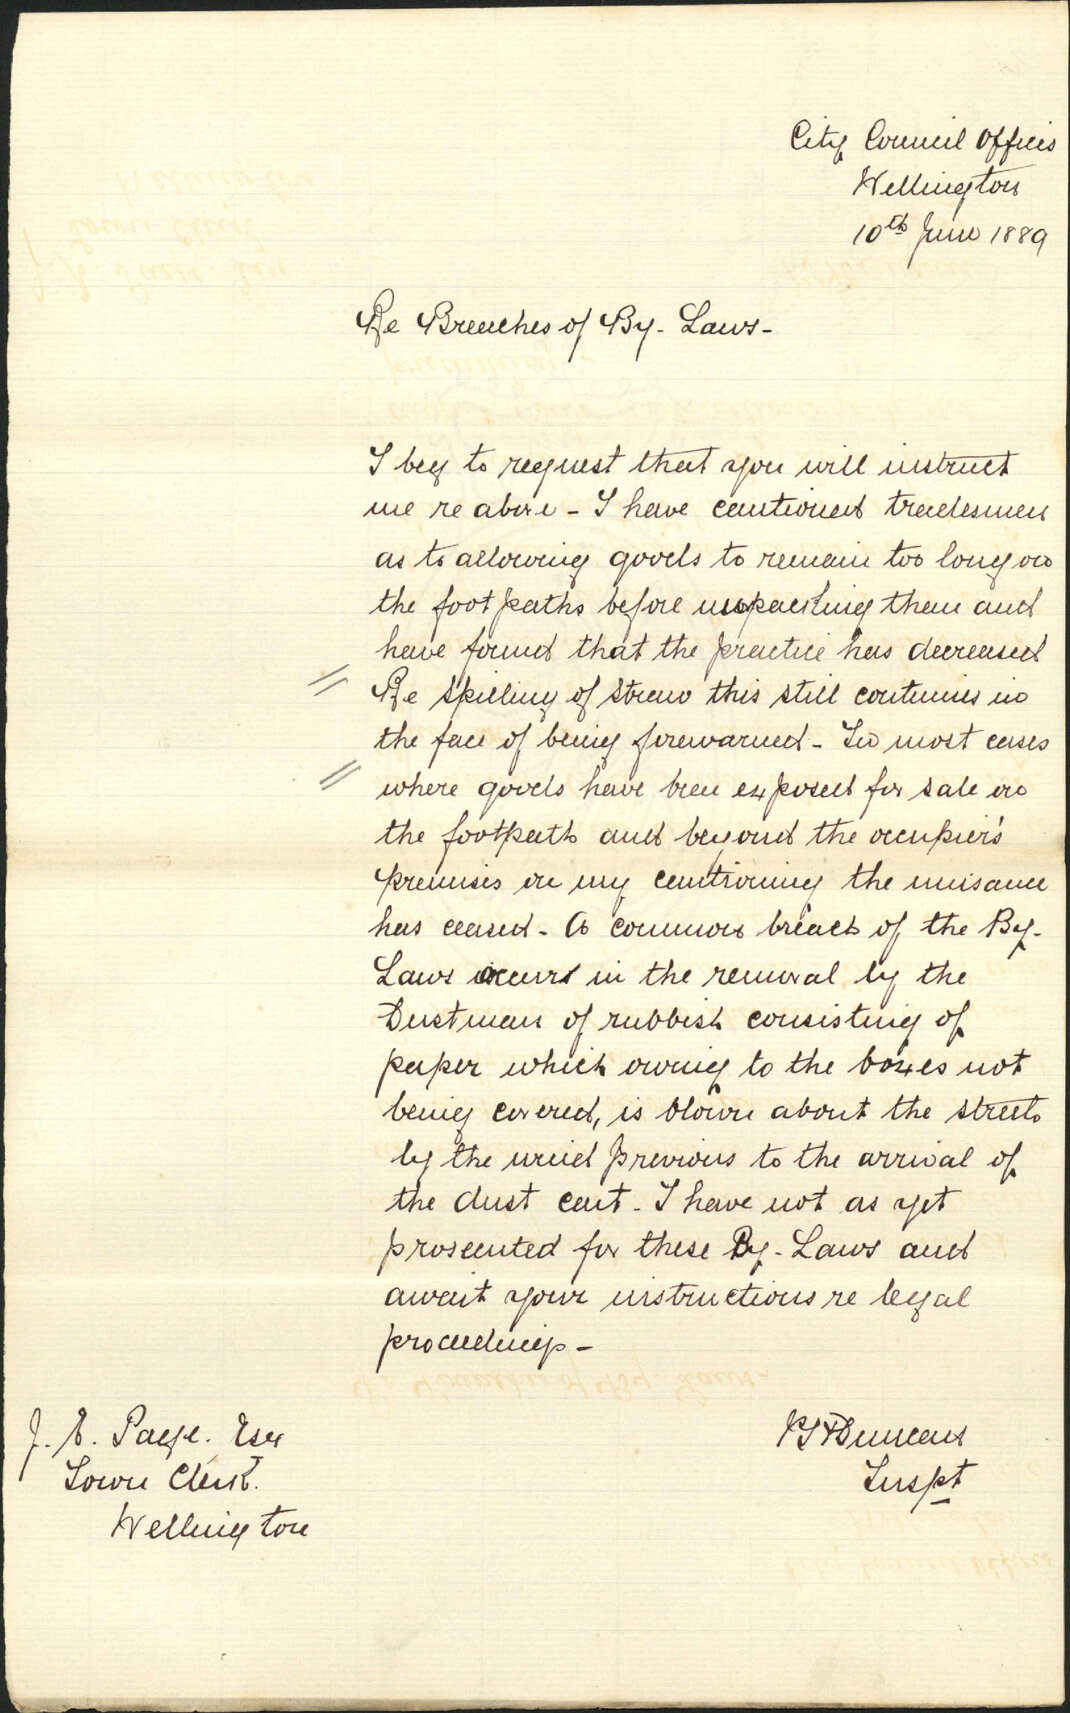 City Council Offices
Wellington
10th June 1889
Re Breaches of By-Laws-
I beg to request that you will instruct
me re above - I have cautioned tradesmen
as to allowing goods to remain too long on
the footpaths before unpacking them and
have found that the practice has decreased
Re spilling of straw this still continues in
the face of being forewarned - In most cases
where goods have been exposed for sale on
the footpath and beyond the occupier's
premises on my cautioning the nuisance
has ceased - A common breach of the By-
Laws occurs in the removal by the
Dustman of rubbish consisting of
paper which owing to the boxes not
being covered, is blown about the streets
by the wind previous to the arrival of
the dust cart - I have not as yet
prosecuted for these By-Laws and
await your instructions re legal
proceedings -
J. E. Page. Esq
Town Clerk.
Wellington
Duncan
Inspt